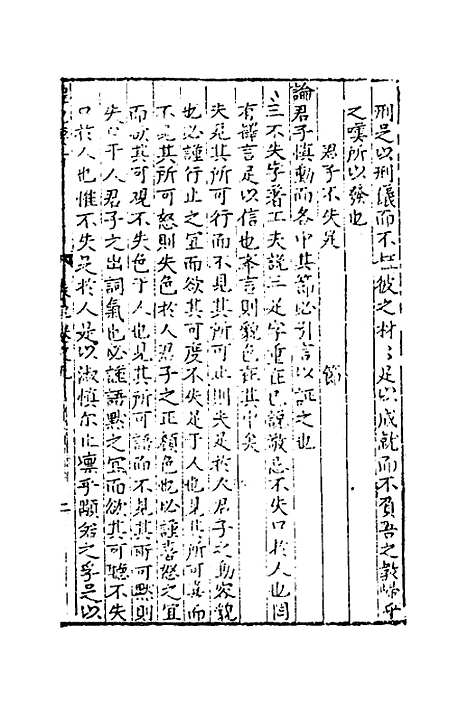 刑足以刑儀而不 彼之材 足以成就而不負吾之教
之嘆所以發也
君子不失足 節
論君子慎動而各中其節必引言以証之也
三不失字著工夫説三足字重在己説敬忌不失口於人也罔
有擇言足以信也本言則貌色在其中矣
失見其所可行而不見其所可止則失足於人君子之動容貌
也必謹行止之宜而欲其可度不失足于人也見其所可喜而
不見其所可怒則失色於人君子之正顔色也必謹喜怒之宜
而欲其可觀不失色于人也見其所可語而不見其所可默則
失口于人君子之出詞氣也必謹語默之宜而欲其可聽不失
口於人也惟不失足於人是以淑慎尔止凛乎顒若之孚足以
二